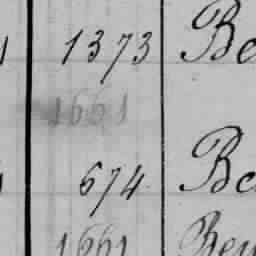 1373 Be
1661
674 Be
1661 Ben